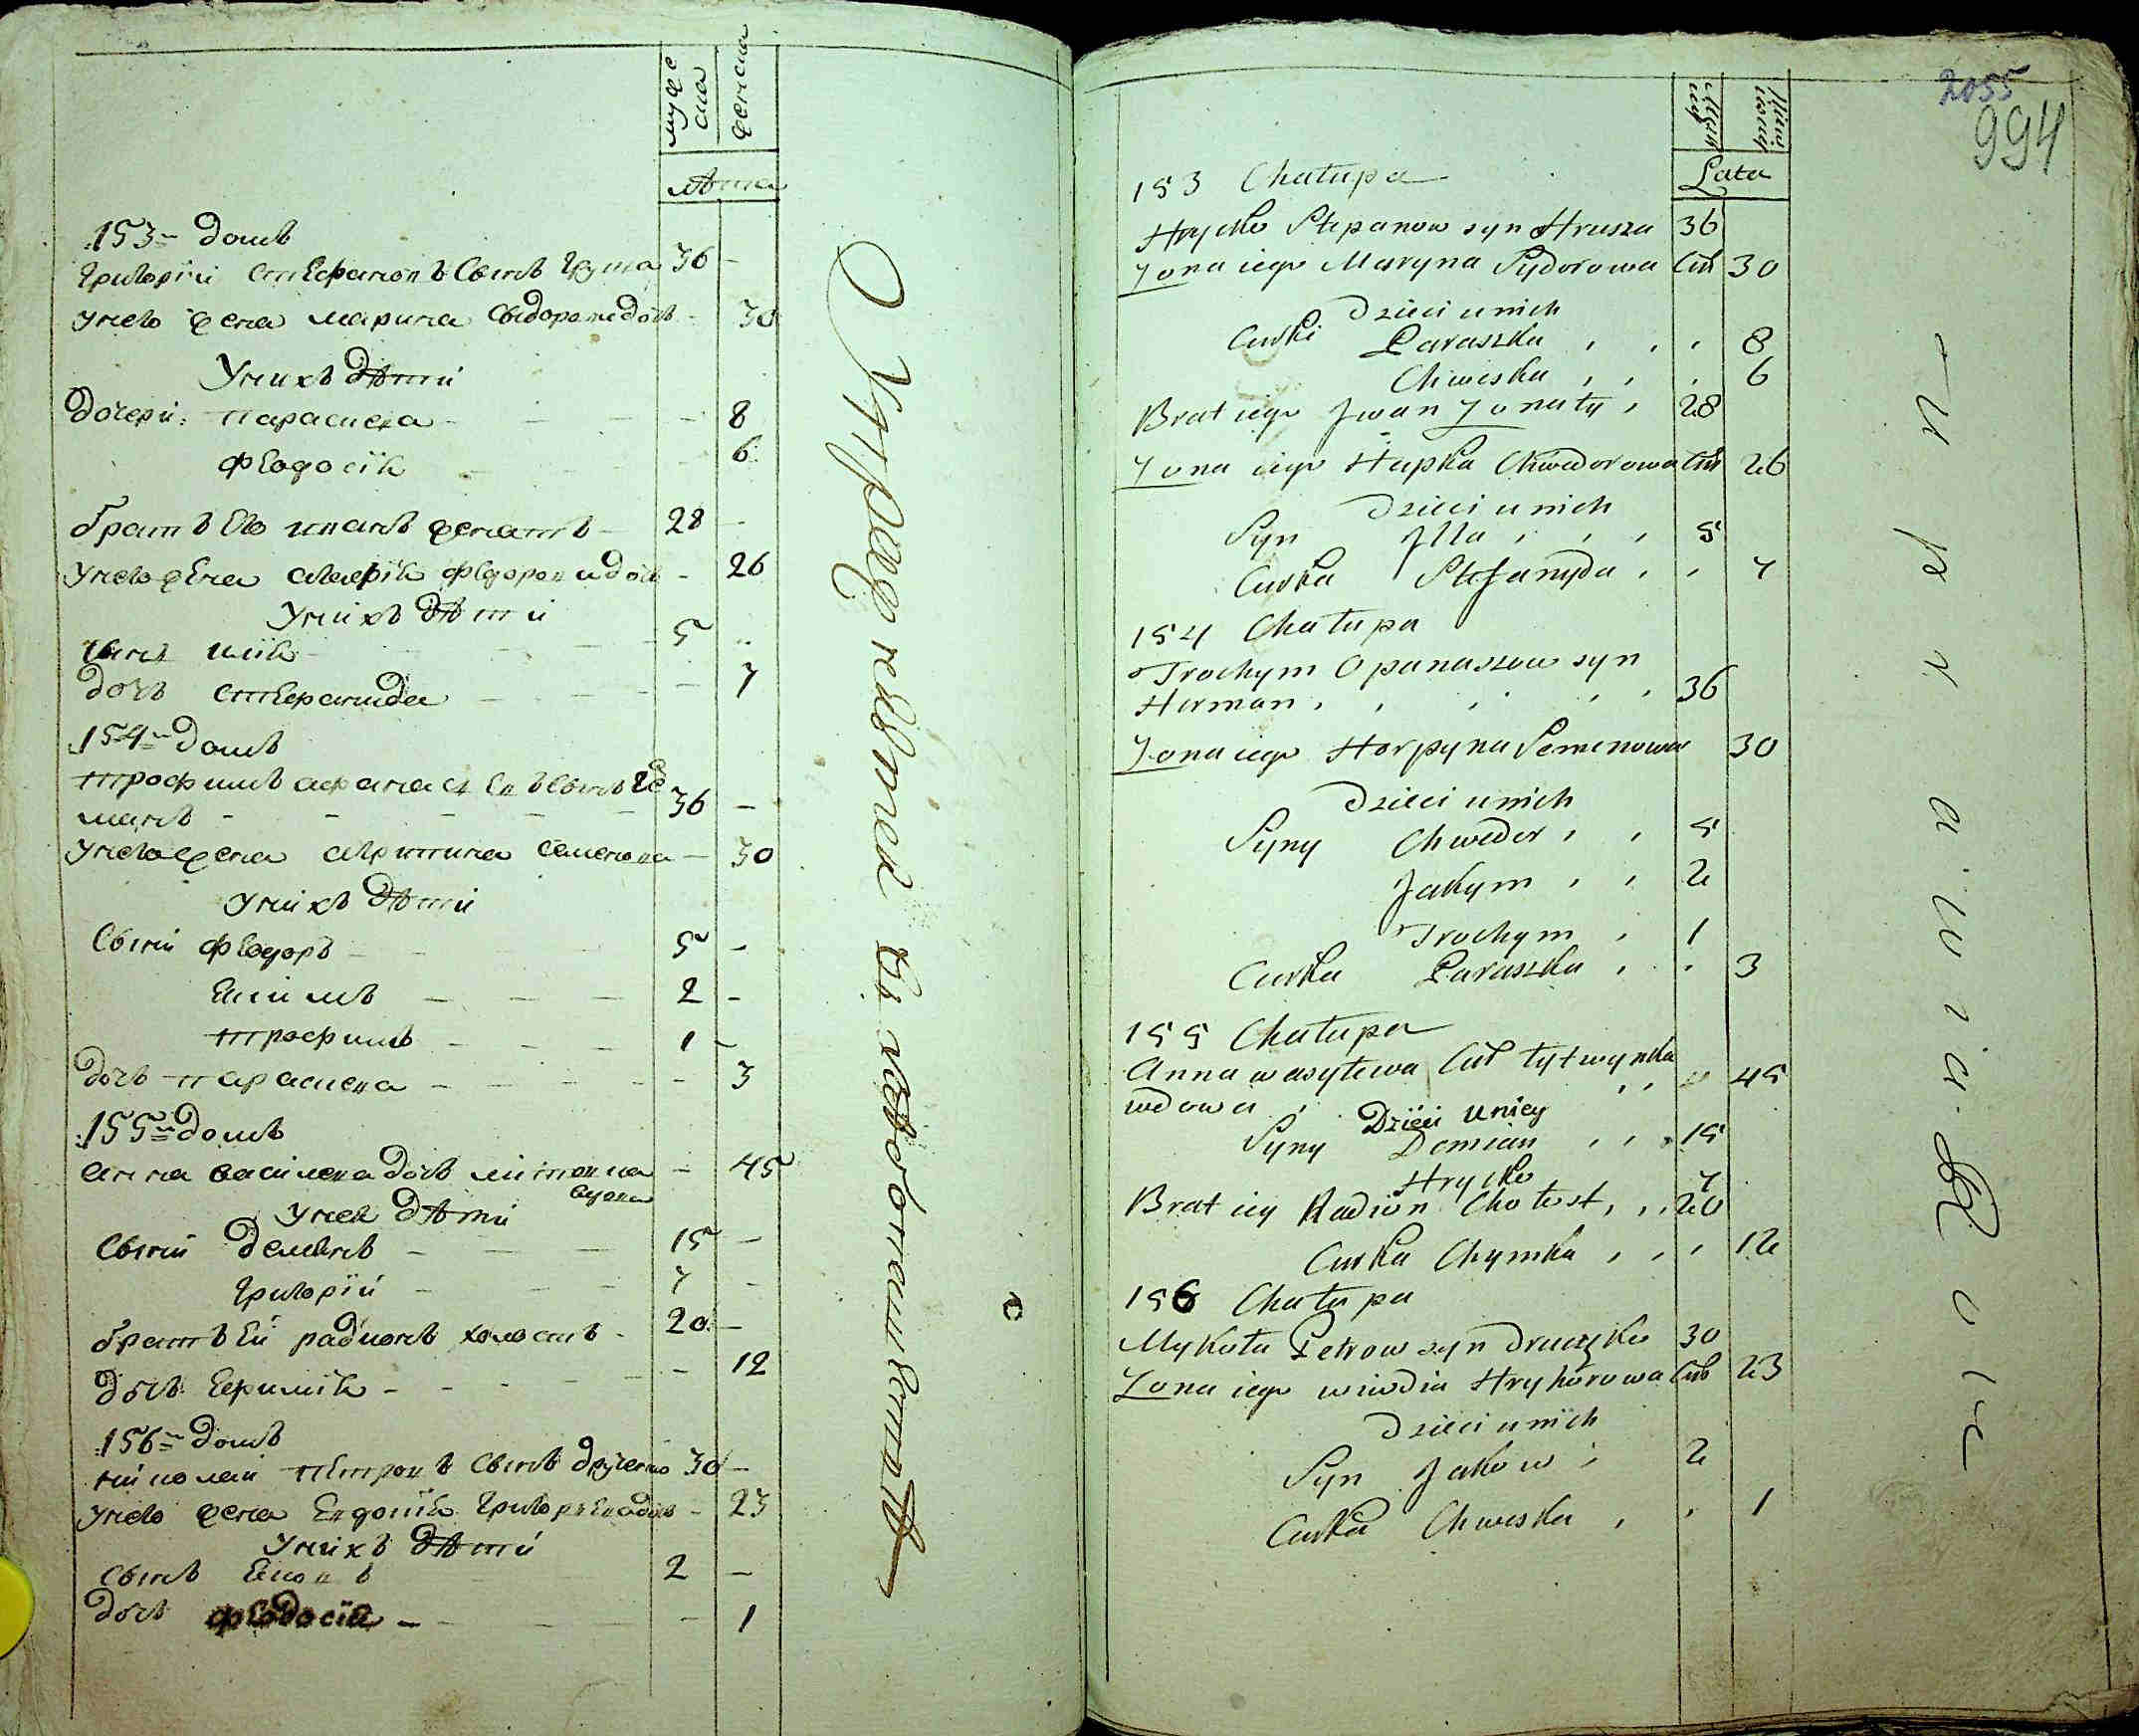 мужеска
женска
лѣта
153 домъ
Григорій Стефановъ сынъ Груша 36 -
У него жена Марина Сидорова дочь - 30
У нихъ дѣти
дочери: Параскева - - - 8
Феодосія - 6
братъ его Иванъ женатъ - 28 -
У него жена Агафія Федорова дочь - 26
У нихъ дѣти
сынъ Илія - 5
дочь Стефанида - - - - 7
154 домъ
Трофимъ Афанасіевъ сынъ Гер
манъ - - - - - 36 -
У него жена Агрипина Семенова - 30
У нихъ дѣти
Сыни Феодоръ - 5 -
Екимъ - - - 2 -
Трофимъ - - - 1 -
дочь Параскева - - - - - 3
155 домъ
Анна Василева дочь Литвинка - 45
вдова
У ней дѣти
Сыни Демянъ - - - 15 -
Григорій - - 7 -
братъ ей Радионъ Холостъ - 20 -
дочь Евфимія - - - - - 12
156 домъ
Николай Петровъ сынъ Дручко 30 -
У него жена Евдокія Григориева дочь - 23
У нихъ дѣти
сынъ Яковъ 2 -
дочь Феодосія - - 1
2055
994
Lata
153 Chałupa
Hrycko Stepanow syn Hrusza 36
Żona iego Maryna Sydorowa Cór 30
Dzieci u nich
Curki Paraszka , , , 8
Chweska , , , 6
Brat iego Jwan Żonaty , 28
Żona iego Hapka Chwedorowa Cór 26
Dzieci u nich
Syn Jlla , , , 5
Curka Stefanyda , , 7
154 Chałupa
Trochym Opanaszow syn
Herman , , , , , 36
Żona iego Horpyna Semenowa 30
Dzieci u nich
Syny Chwedor , , 5
Jakym , , 2
Trochym , 1
Curka Paraszka , , 3
155 Chałupa
Anna Wasylewa Cór Łytwynka
wdowa , , , 45
Dzieci u niey
Syny Demian , , , 15
Hrycko 7
Brat iey Radion Chołost , , , 20
Curka Chymka , , , 12
156 Chałupa
Mykoła Petrow syn Druczko 30
Żona iego Wiwdia Hryhorowa Cór 23
Dzieci u nich
Syn Jakow , 2
Curka Chweska , , 1